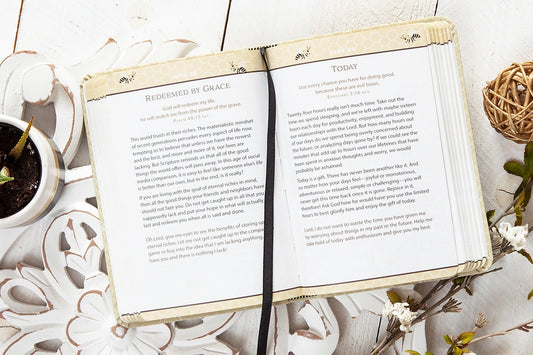 REDEEMED BY GRACE
God will redeem my life.
he will snatch me from the power of the grave.
PSALM 49:15 NLT
This world trusts in their riches. The materialistic mindset
of recent generations pervades every aspect of life now,
tempting us to believe that unless we have the newest,
and the best, and more and more of it, our lives are
lacking. But Scripture reminds us that all of the shiny
things the world offers will pass away. In this age of social
media comparison, it is easy to feel like someone else's life
is better than our own, but in the end, is it really?
If you are living with the goal of eternal riches in mind,
then all the good things your friends and neighbors have
should not faze you. Do not get caught up in all that you
supposedly lack and put your hope in what will actually
last and redeem you when all is said and done.
Oh Lord, give me eyes to see the benefits of storing up
eternal riches. Let me not get caught up in the comparison
game or buy into the idea that I am lacking anything.
I have you and there is nothing I lack!
TODAY
Use every chance you have for doing good,
because these are evil times.
EPHESIANS 5:16 NCV
Twenty-four hours really isn't much time. Take out the
time we spend sleeping, and we're left with maybe sixteen
hours each day for productivity, enjoyment, and building
our relationships with the Lord. But how many hours out
of our days do we spend being overly concerned about
the future, or analyzing days gone by? If we could see the
minutes that add up to hours over our lifetimes that have
been spent in anxious thoughts and worry, we would
probably be ashamed.
Today is a gift. There has never been another like it. And
no matter how your days feel—joyful or monotonous,
adventurous or relaxed, simple or challenging—you will
never get this time back once it is gone. Rejoice in it,
therefore! Ask God how he would have you use the limited
hours to best glorify him and enjoy the gift of today.
Lord, I do not want to waste the time you have given me
by worrying about things in my past or the future. Help me
take hold of today with enthusiasm and give you my best.